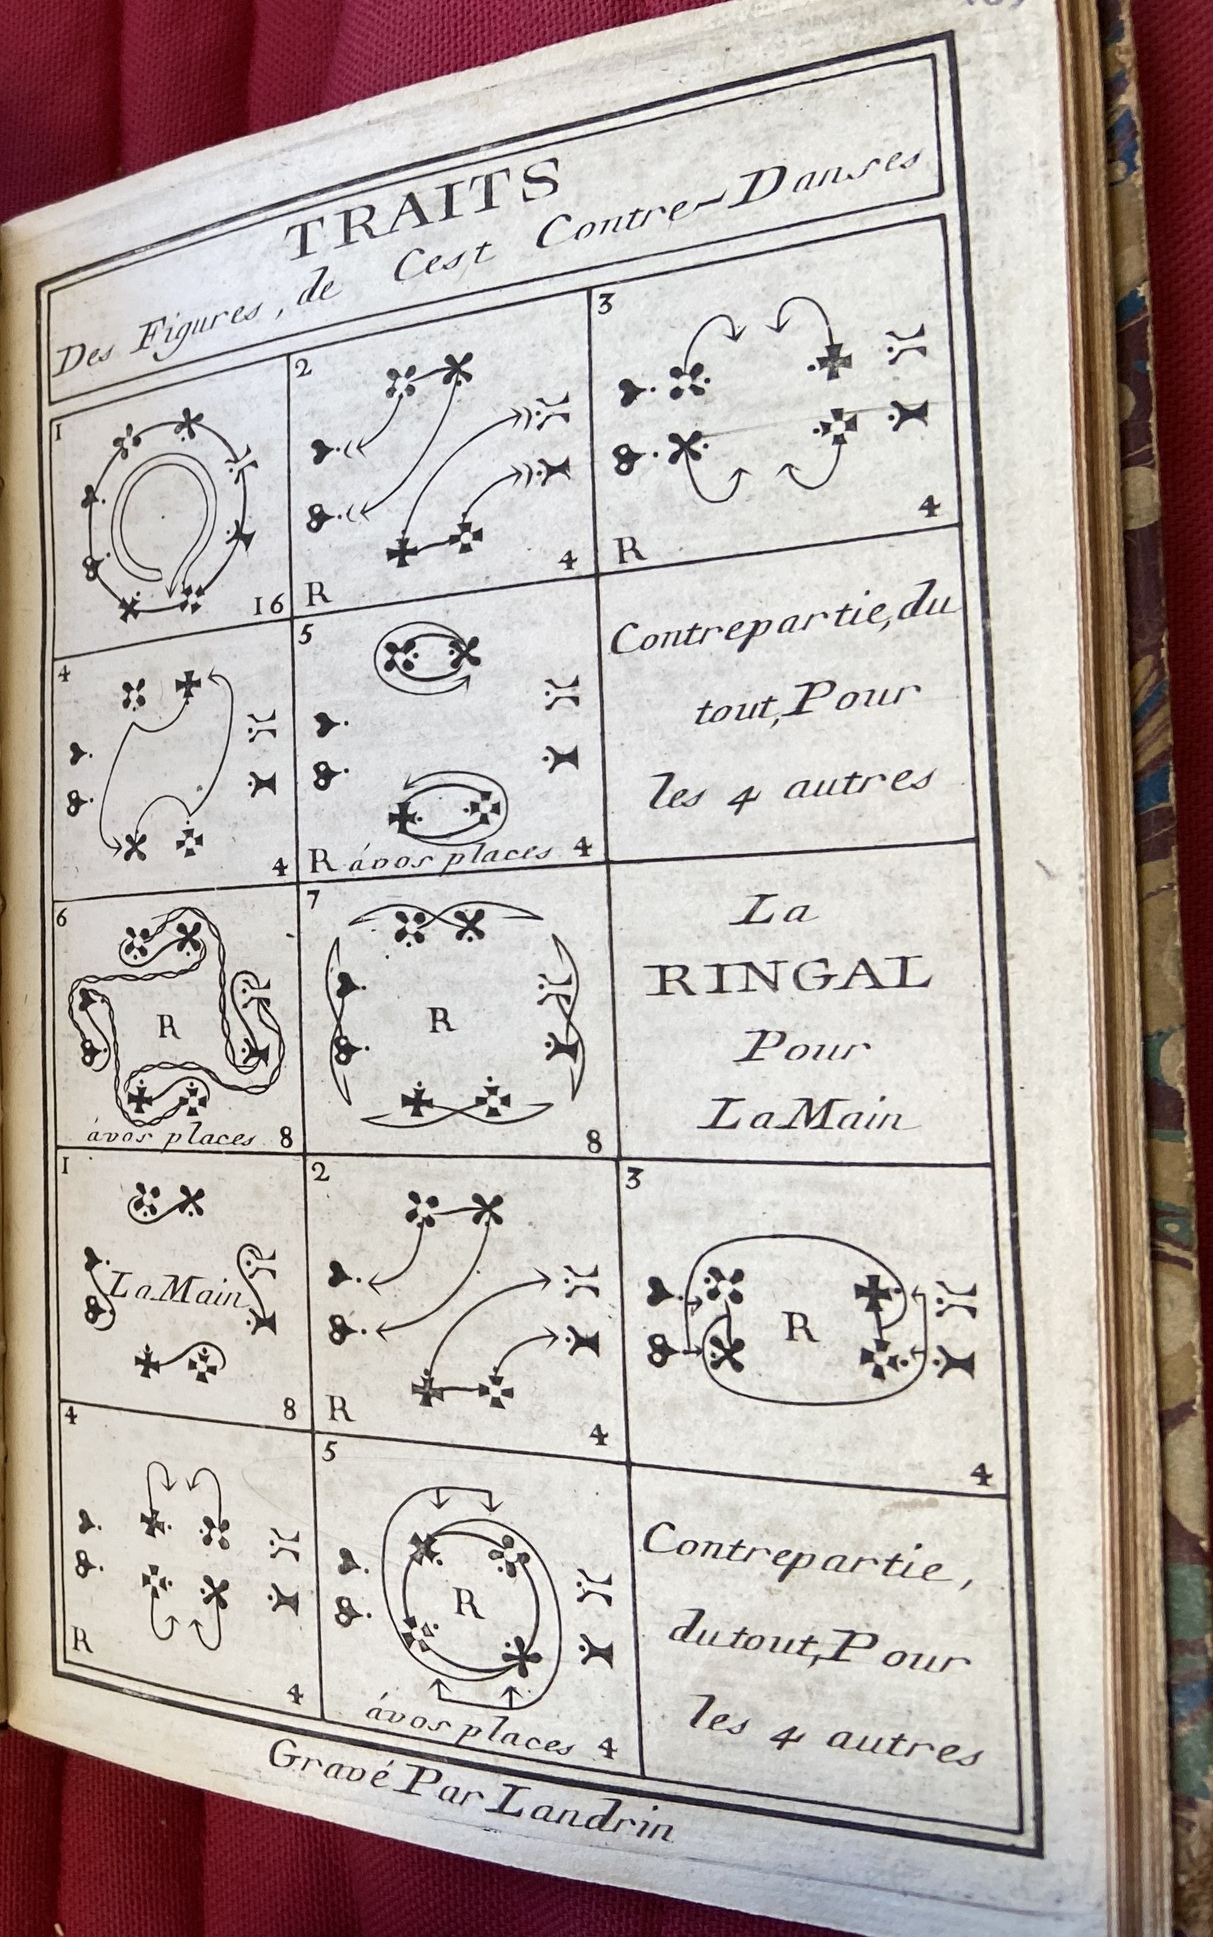 TRAITS
Des Figures, de Cest Contre-Danses
1
16
2
R
4
3
R
4
4
4
5
R ávos places 4
Contrepartie, du
tout, Pour
les 4 autres
6
R
ávos places 8
7
R
8
La
RINGAL
Pour
La Main
1
La Main
8
2
R
4
3
R
4
4
R
4
5
R
ávos places 4
Contrepartie,
du tout, Pour
les 4 autres
Gravé Par Landrin